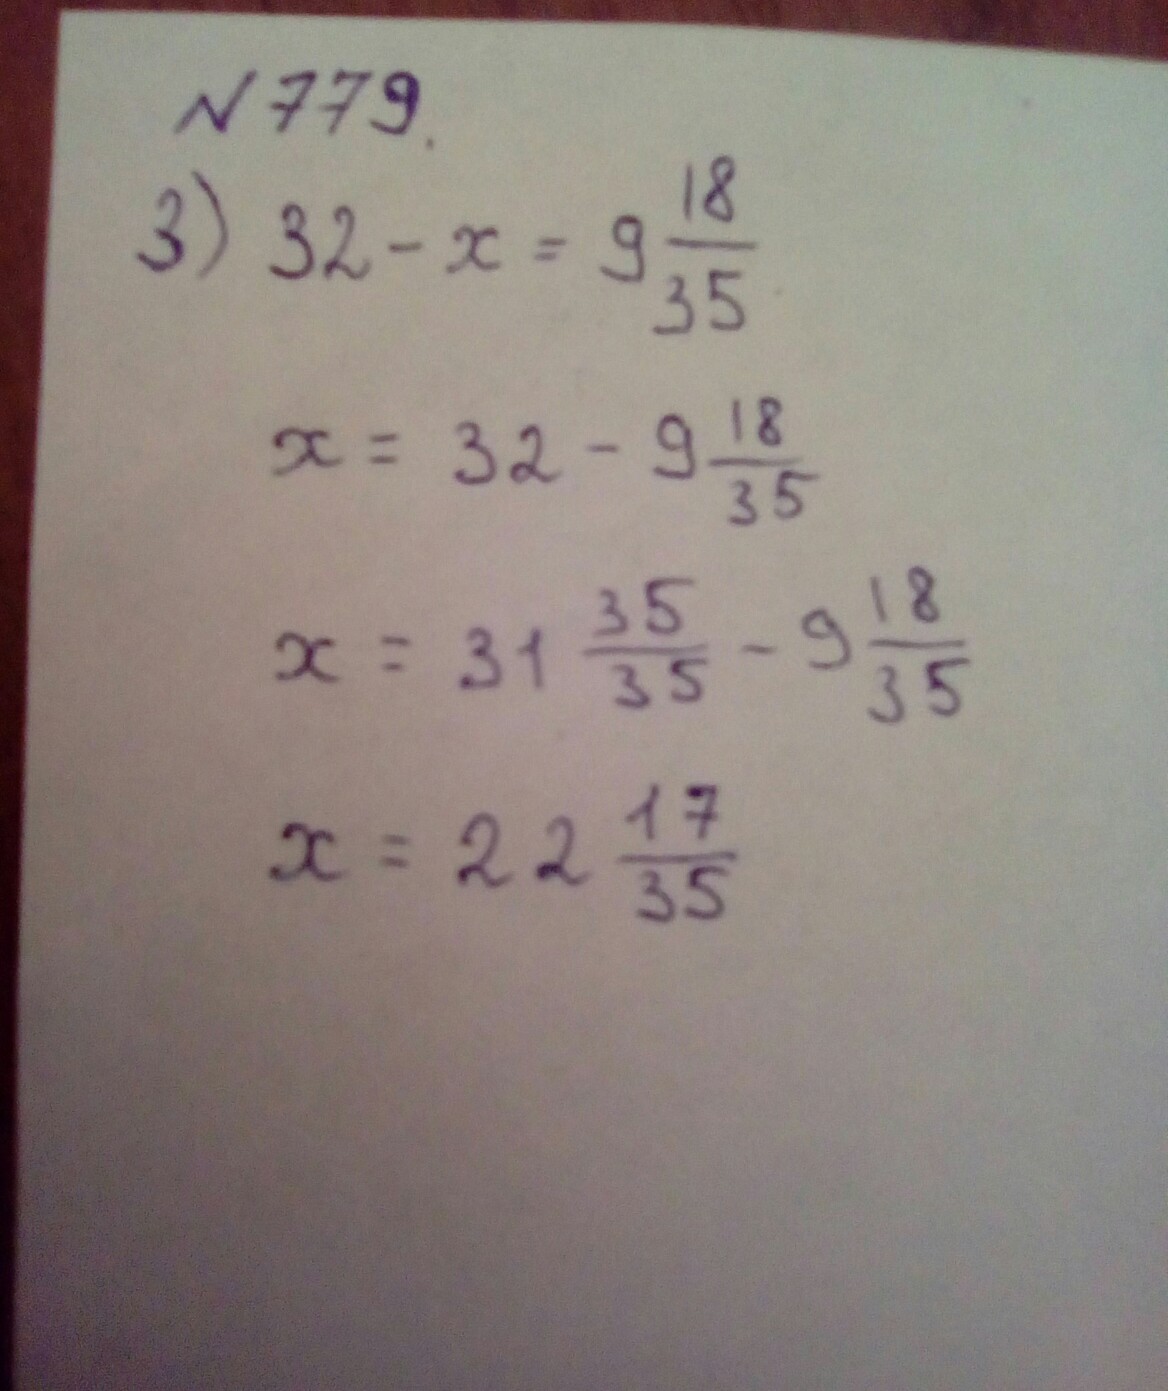 N 779.
3) 32 - x = 9 18/35
x = 32 - 9 18/35
x = 31 35/35 - 9 18/35
x = 22 17/35